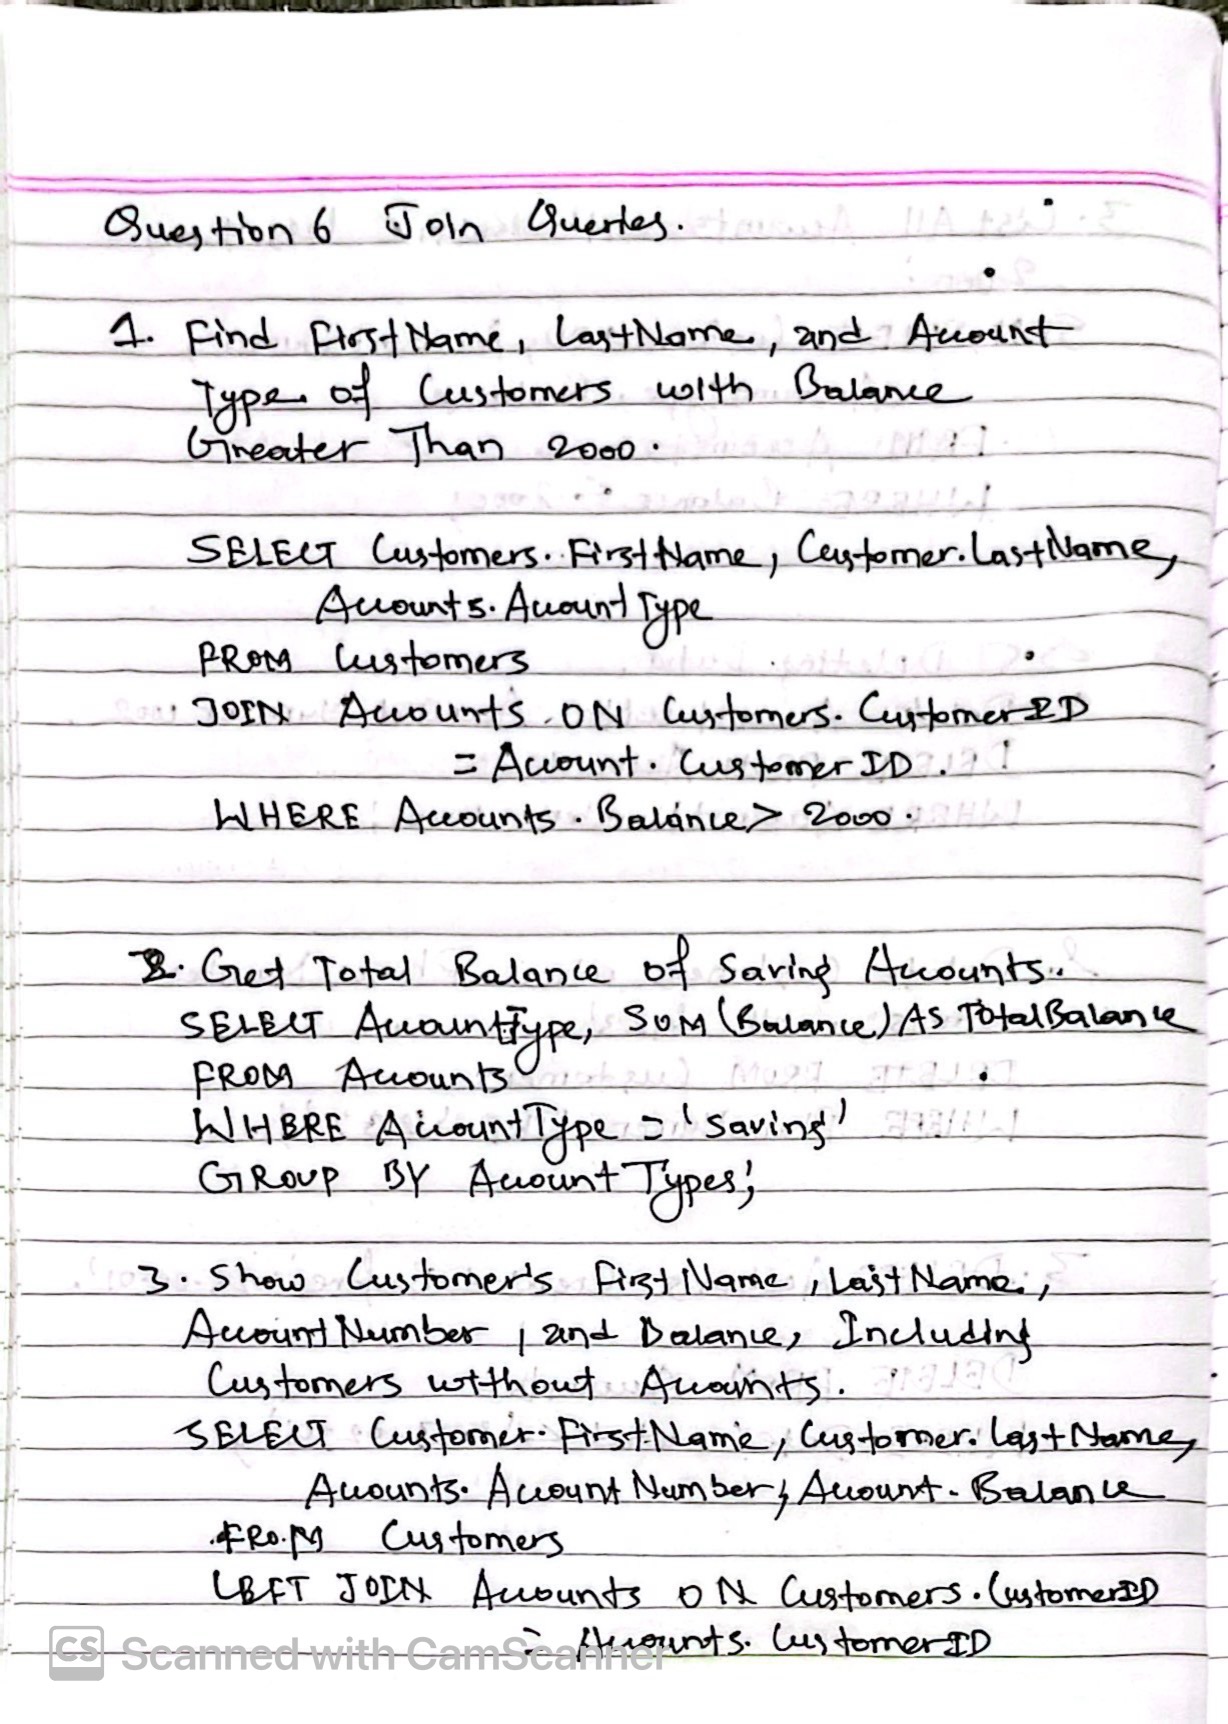 Question 6 Join Queries.
1. Find FirstName, LastName, and Account
Type of Customers with Balance
Greater Than 2000.
SELECT Customers.FirstName, Customer.LastName,
Accounts.AccountType
FROM Customers
JOIN Accounts ON Customers.CustomerID
= Account.CustomerID.
WHERE Accounts.Balance > 2000.
2. Get Total Balance of Saving Accounts..
SELECT AccountType, SUM (Balance) AS TotalBalance
FROM Accounts
WHERE AccountType = 'Saving'
GROUP BY AccountTypes;
3. Show Customer's FirstName, LastName,
AccountNumber, and Balance, Including
Customers without Accounts.
SELECT Customer.FirstName, Customer.LastName,
Accounts.AccountNumber, Account.Balance
FROM Customers
LEFT JOIN Accounts ON Customers.CustomerID
= Accounts.CustomerID
CS Scanned with CamScanner